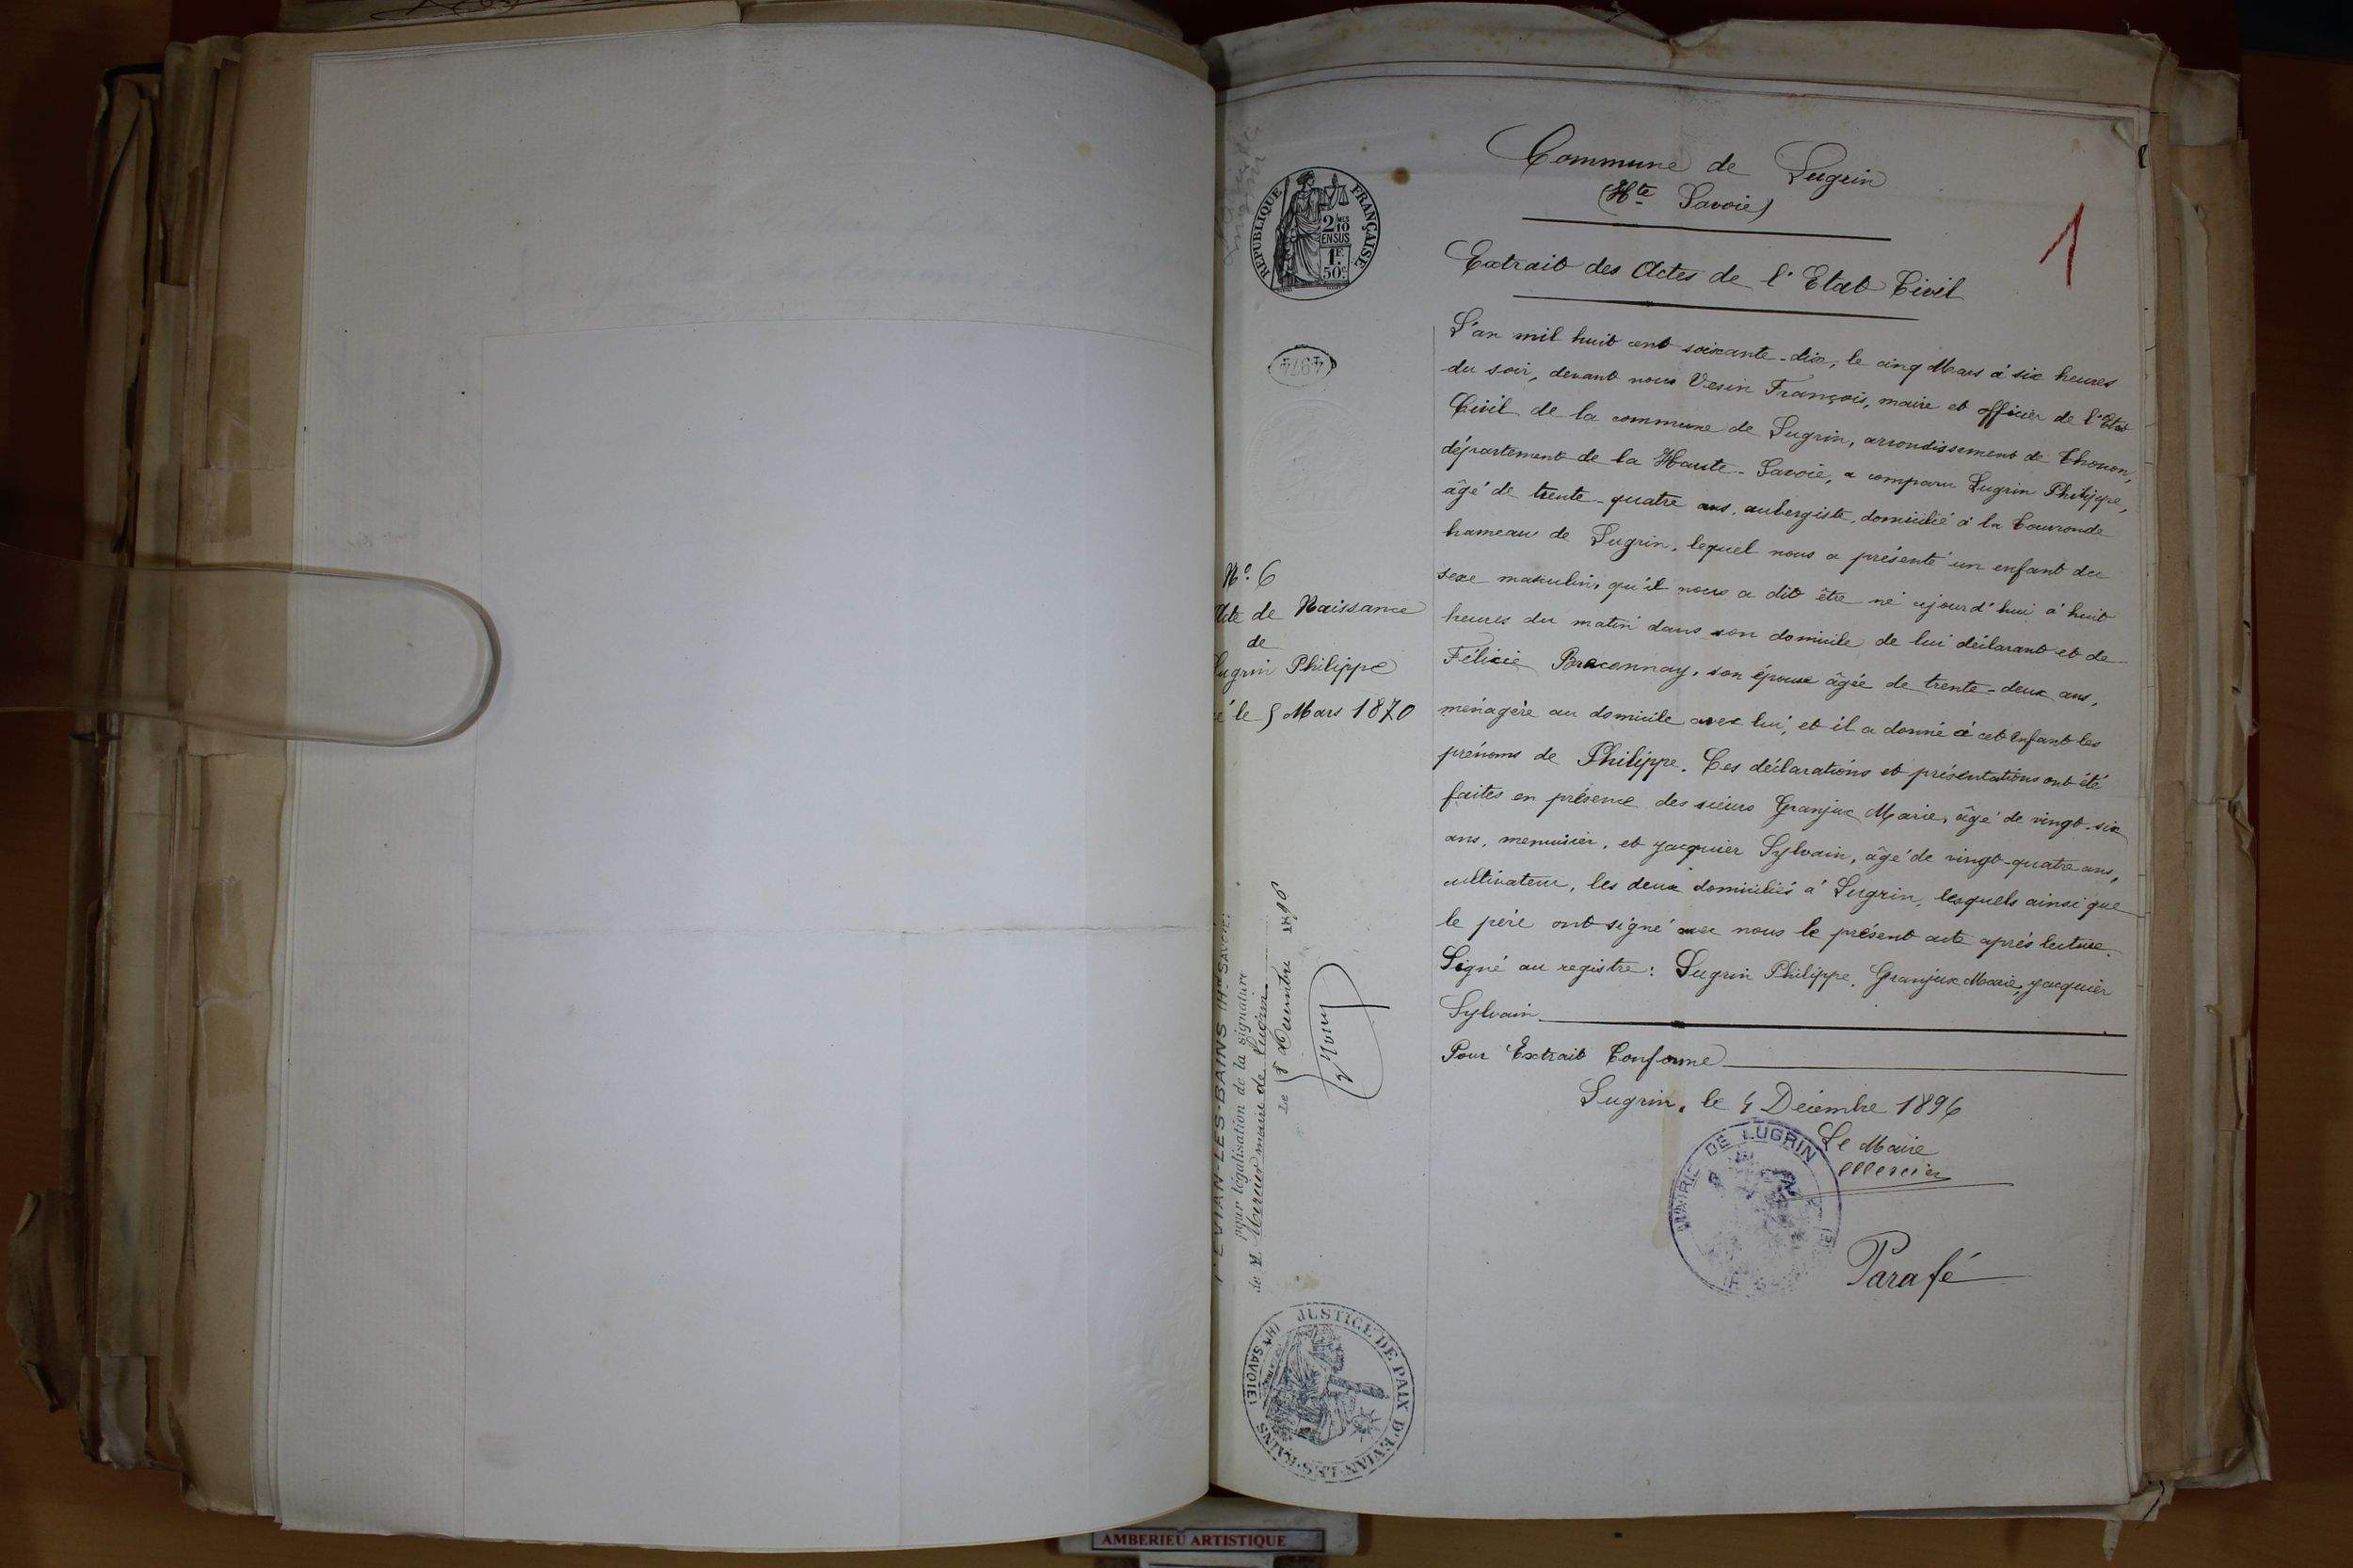 Commune de Lugrin
(Hte Savoie)
1
Extrait des Actes de l'Etat Civil
REPUBLIQUE FRANÇAISE
2 MES
10
EN SUS
1F
50c
4974
L'an mil huit cent soixante-dix, le cinq Mars à six heures
du soir, devant nous Vesin François, maire et officier de l'Etat
Civil de la commune de Lugrin, arrondissement de Thonon,
département de la Haute-Savoie, a comparu Lugrin Philippe,
âgé de trente-quatre ans, aubergiste, domicilié à la Tourronde
hameau de Lugrin, lequel nous a présenté un enfant du
sexe masculin, qu'il nous a dit être né ajourd'hui à huit
heures du matin dans son domicile de lui déclarant et de
Félicie Braconnay, son épouse âgée de trente-deux ans,
ménagère au domicile avec lui, et il a donné à cet enfant les
prénoms de Philippe. Ces déclarations et présentations ont été
faites en présence des sieurs Granjux Marie, âgé de vingt-six
ans, menuisier, et Jacquier Sylvain, âgé de vingt-quatre ans,
cultivateur, les deux domiciliés à Lugrin, lesquels ainsi que
le père ont signé avec nous le présent acte après lecture.
Signé au registre: Lugrin Philippe, Granjux Marie, Jacquier
Sylvain
Pour Extrait Conforme
Lugrin, le 4 Décembre 1896
Le Maire
Mercier
MAIRIE DE LUGRIN
Parafé
No. 6
Acte de Naissance
de
Lugrin Philippe
é le 5 Mars 1870
EVIAN-LES-BAINS (Hte SAVOIE)
pour légalisation de la signature
de M. Mercier maire de Lugrin
Le 5 Décembre 1896
JUSTICE DE PAIX D'EVIAN-LES-BAINS
(Hte SAVOIE)
AMBERIEU ARTISTIQUE